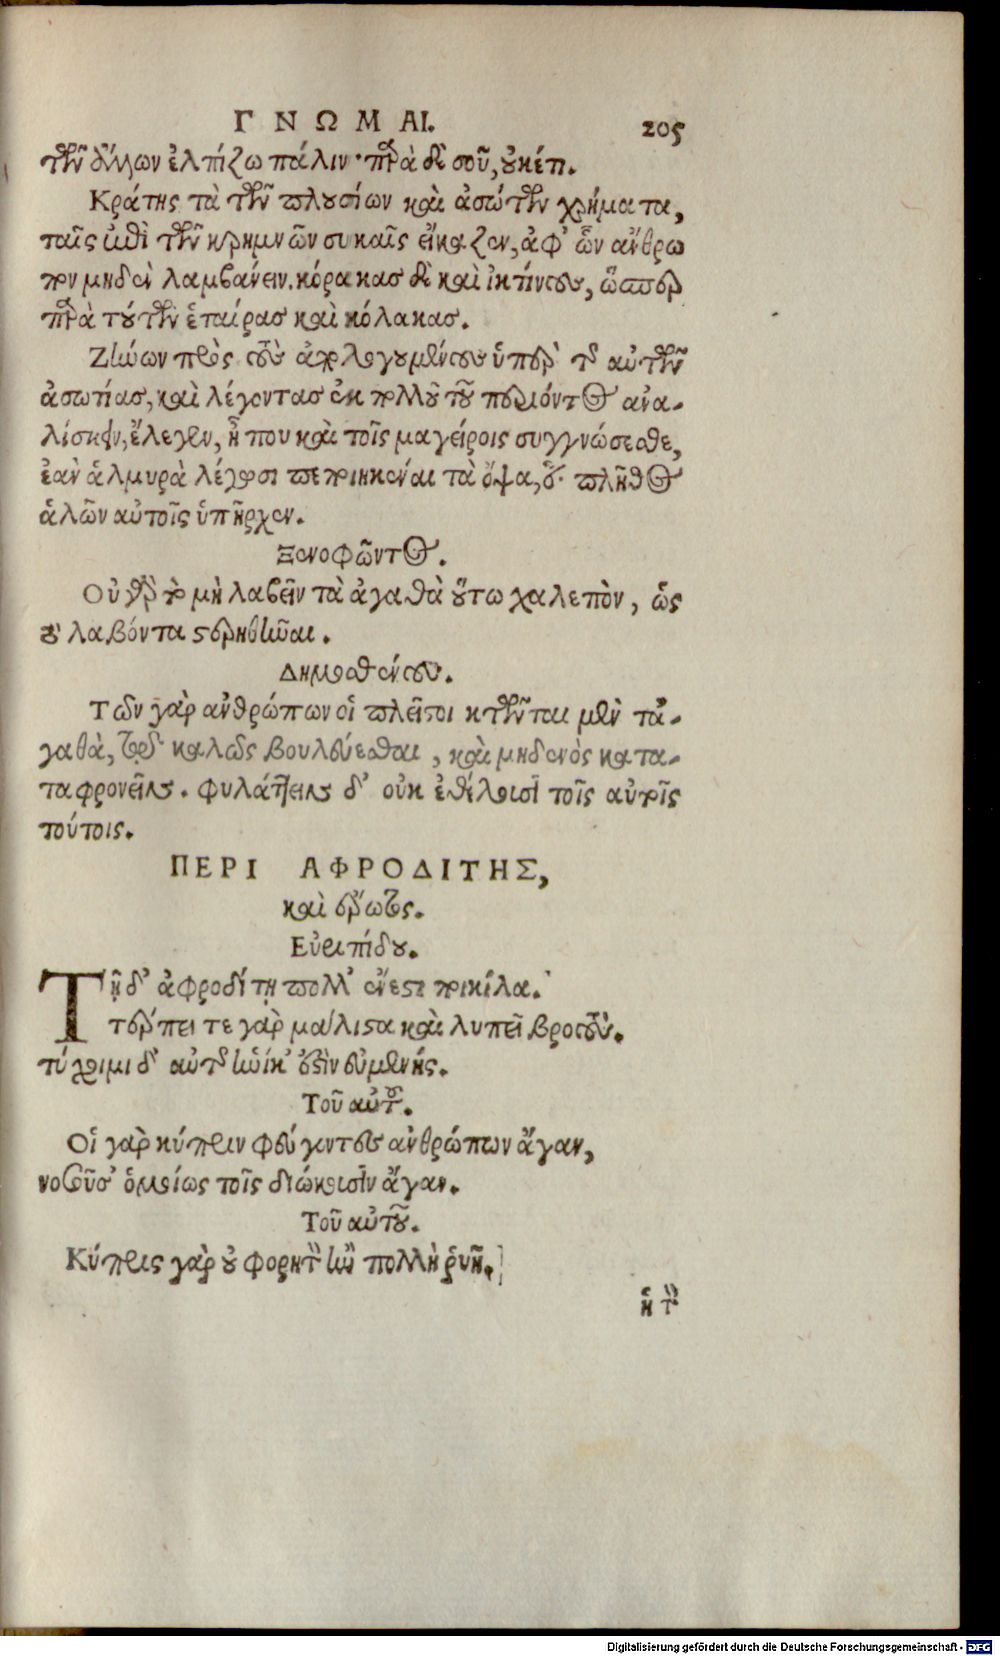 ΓΝΩΜΑΙ. 205
τῶν ἄλλων ἐλπίζω πάλιν· παρὰ δὲ σοῦ, οὐκέτι.
Κράτης τὰ τῶν πλουσίων καὶ ἀσώτων χρήματα,
ταῖς ἐπὶ τῶν κρημνῶν συκαῖς εἴκαζεν, ἀφ’ ὧν ἄνθρω
πον μηδὲν λαμβάνειν. κόρακας δὲ καὶ ἰκτίνους, ὥσπερ
παρὰ τούτων ἑταίρας καὶ κόλακας.
Ζήνων πρὸς τοὺς ἀπολογουμένους ὑπὲρ τῆς αὐτῶν
ἀσωτίας, καὶ λέγοντας ἐκ πολλοῦ τοῦ περιόντος ἀνα-
λίσκειν, ἔλεγεν, ἦ που καὶ τοῖς μαγείροις συγγνώσεσθε,
ἐὰν ἁλμυρὰ λέγωσι πεποιηκέναι τὰ ὄψα, ὅτι πλῆθος
ἁλῶν αὐτοῖς ὑπῆρχεν.
Ξενοφῶντος.
Οὐ γὰρ τὸ μὴ λαβεῖν τὰ ἀγαθὰ οὕτω χαλεπὸν, ὡς
τὸ λαβόντα στερηθῆναι.
Δημοσθένους.
Τῶν γὰρ ἀνθρώπων οἱ πλεῖστοι κτῶνται μὲν τἀ-
γαθὰ, τῷ καλῶς βουλεύεσθαι, καὶ μηδενὸς κατα-
ταφρονεῖν. φυλάττειν δ’ οὐκ ἐθέλουσι τοῖς αὐτοῖς
τούτοις.
ΠΕΡΙ ΑΦΡΟΔΙΤΗΣ,
καὶ ἔρωτος.
Εὐριπίδου.
Τῇ δ’ ἀφροδίτῃ πόλλ’ ἔνεστι ποικίλα.
τέρπει τε γὰρ μάλιστα καὶ λυπεῖ βροτούς.
τύχοιμι δ’ αὐτῆς ἡνίκ’ ἐστὶν εὐμενής.
Τοῦ αὐτοῦ.
Οἱ γὰρ κύπριν φεύγοντες ἀνθρώπων ἄγαν,
νοσοῦσ’ ὁμοίως τοῖς διώκουσιν ἄγαν.
Τοῦ αὐτοῦ.
Κύπρις γὰρ οὐ φορητὸν ἢν πολλὴ ῥυῇ.
ἣ τὸν
Digitalisierung gefördert durch die Deutsche Forschungsgemeinschaft - DFG